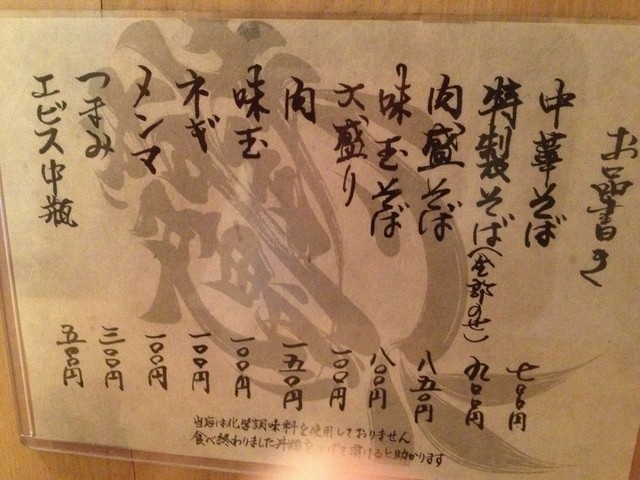 お品書き
中華そば 七〇〇円
特製そば(全部のせ) 九〇〇円
肉盛そば 八五〇円
味玉そば 八〇〇円
大盛り 一〇〇円
肉 一五〇円
味玉 一〇〇円
ネギ 一〇〇円
メンマ 一〇〇円
つまみ 三〇〇円
エビス中瓶 五〇〇円
当店は化学調味料を使用しておりません
食べ終わりました丼類を上げて頂けると助かります